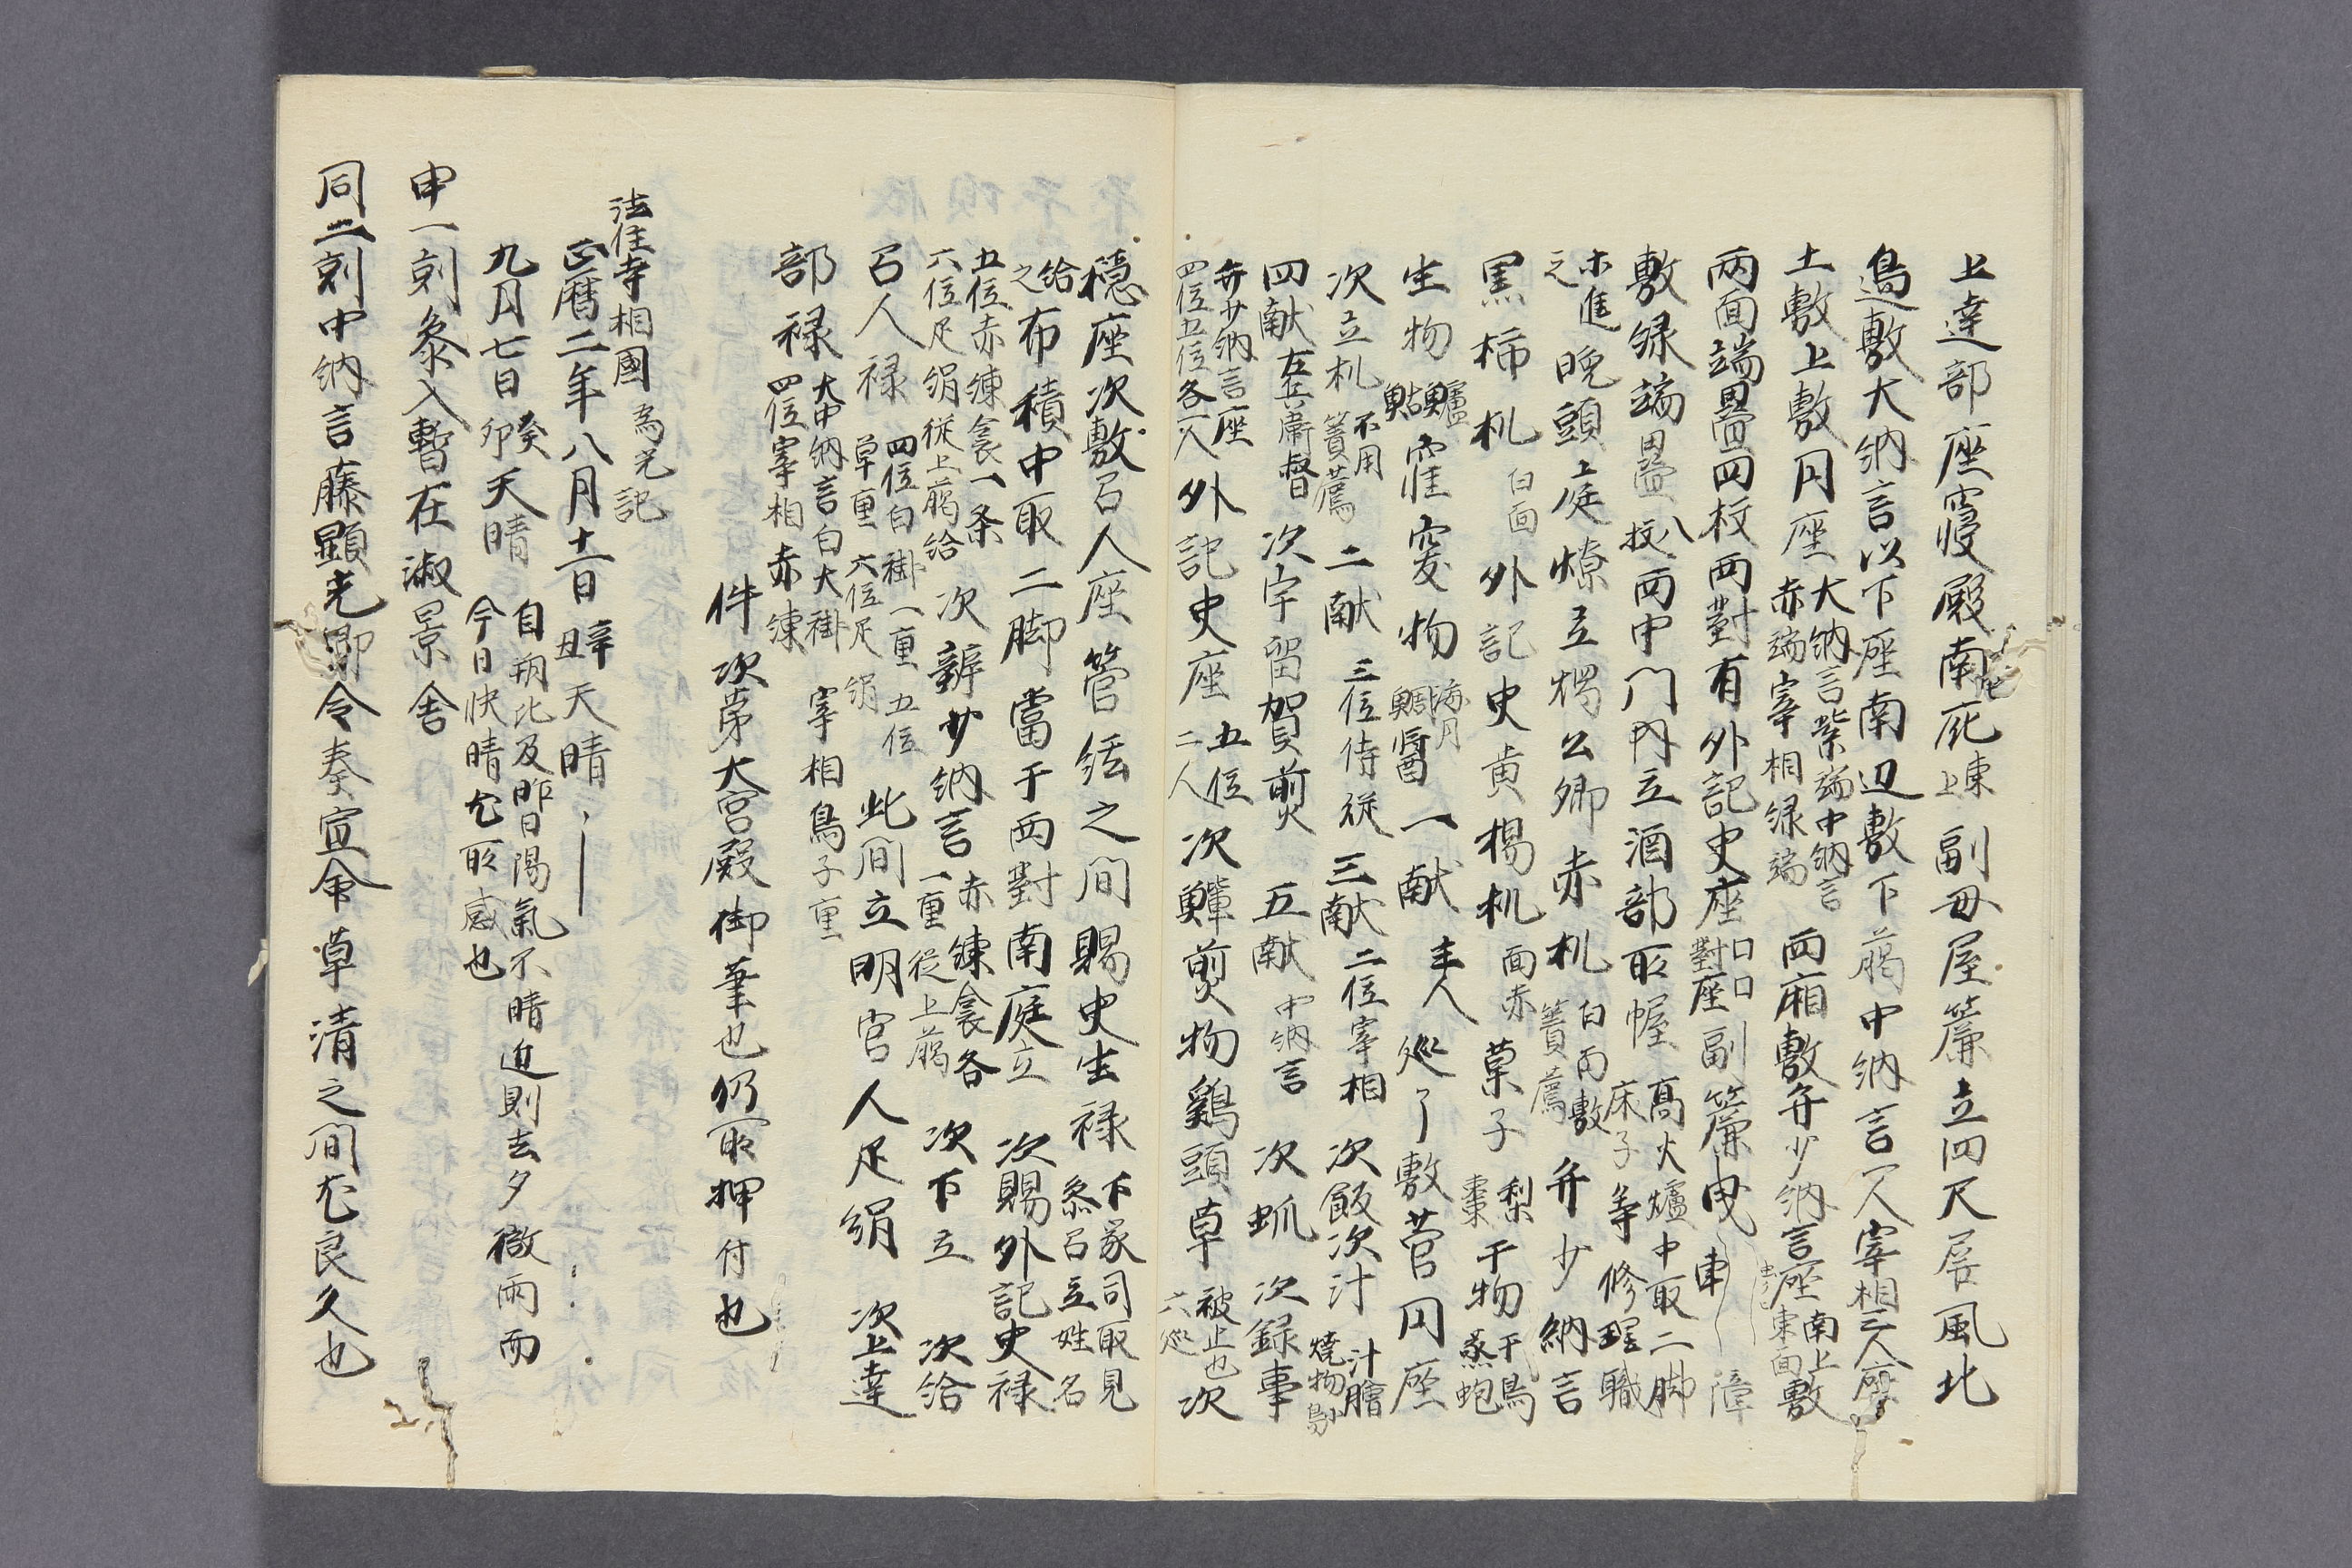 上達部座寝殿南庇東上副母屋簾立四尺屏風北
邊敷大納言以下座南辺敷下﨟中納言一人宰相三人座
土敷上敷円座大納言紫端中納言赤端宰相緑端両廂敷弁少納言座南上東面敷
両面端畳四枚両對有外記史座對座副簾曳 障
敷緑端畳八枚両中門内立酒部所幄高火爐中取二脚床子等修理職
之進晩頭上庭燎立楞公卿赤机白両敷簀薦弁少納言
黒柿机白面外記史黄楊机面赤菓子梨棗干物干鳥蒸蚫
生物鱸鮎窪窪物海月鯛醤一献主人巡了敷菅円座
次立机不用簀薦二献三位侍従三献二位宰相次飯次汁汁膾焼物
四献左兵衛督次宇留賀煎五献中納言次蚫次録事
弁少納言座四位五位各一人外記史座五位二人次鱓煎物鷄頭草被止也六巡次
穏座次敷召人座管絃之間賜史生禄下家司取見参召立姓名
給之布積中取二脚當于両對南庭立次賜外記史禄
五位赤練衾一条六位疋絹従上﨟給次辨少納言赤練衾各一重従上﨟次下立次給
召人禄四位白褂一重五位単重六位疋絹此間立明官人疋絹次上達
部禄大中納言白大褂宰相鳥子重四位宰相赤練
件次第大宮殿御筆也仍所押付也
法住寺相國為光記
正暦二年八月十一日辛丑天晴
九月七日癸卯天晴自朔比及昨日陽氣不晴迫則去夕微雨而今日快晴尤所感也
申一剋参入暫在淑景舎
同二剋中納言藤顕光卿令奏宣命草清之間尤良久也